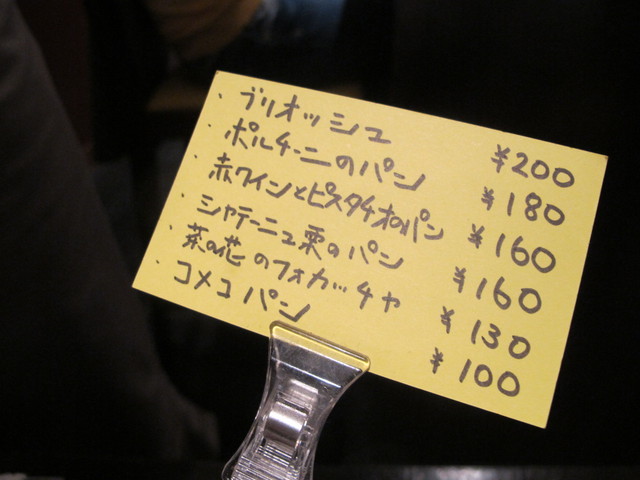 ・ブリオッシュ ¥200
・ポルチーニのパン ¥180
・赤ワインとピスタチオのパン ¥160
・シャテーニュ栗のパン ¥160
・茶の花のフォカッチャ ¥130
・コメコパン ¥100